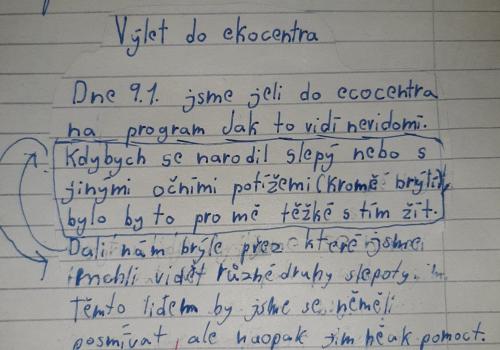 Výlet do ekocentra
Dne 9.1. jsme jeli do ecocentra
na program Jak to vidí nevidomí.
Kdybych se narodil slepý nebo s
jinými očními potížemi (kromě brýlí),
bylo by to pro mě těžké s tím žít.
Dali nám brýle přez které jsme
mohli vidět různé druhy slepoty.
Těmto lidem by jsme se neměli
posmívat, ale naopak jim něak pomoct.